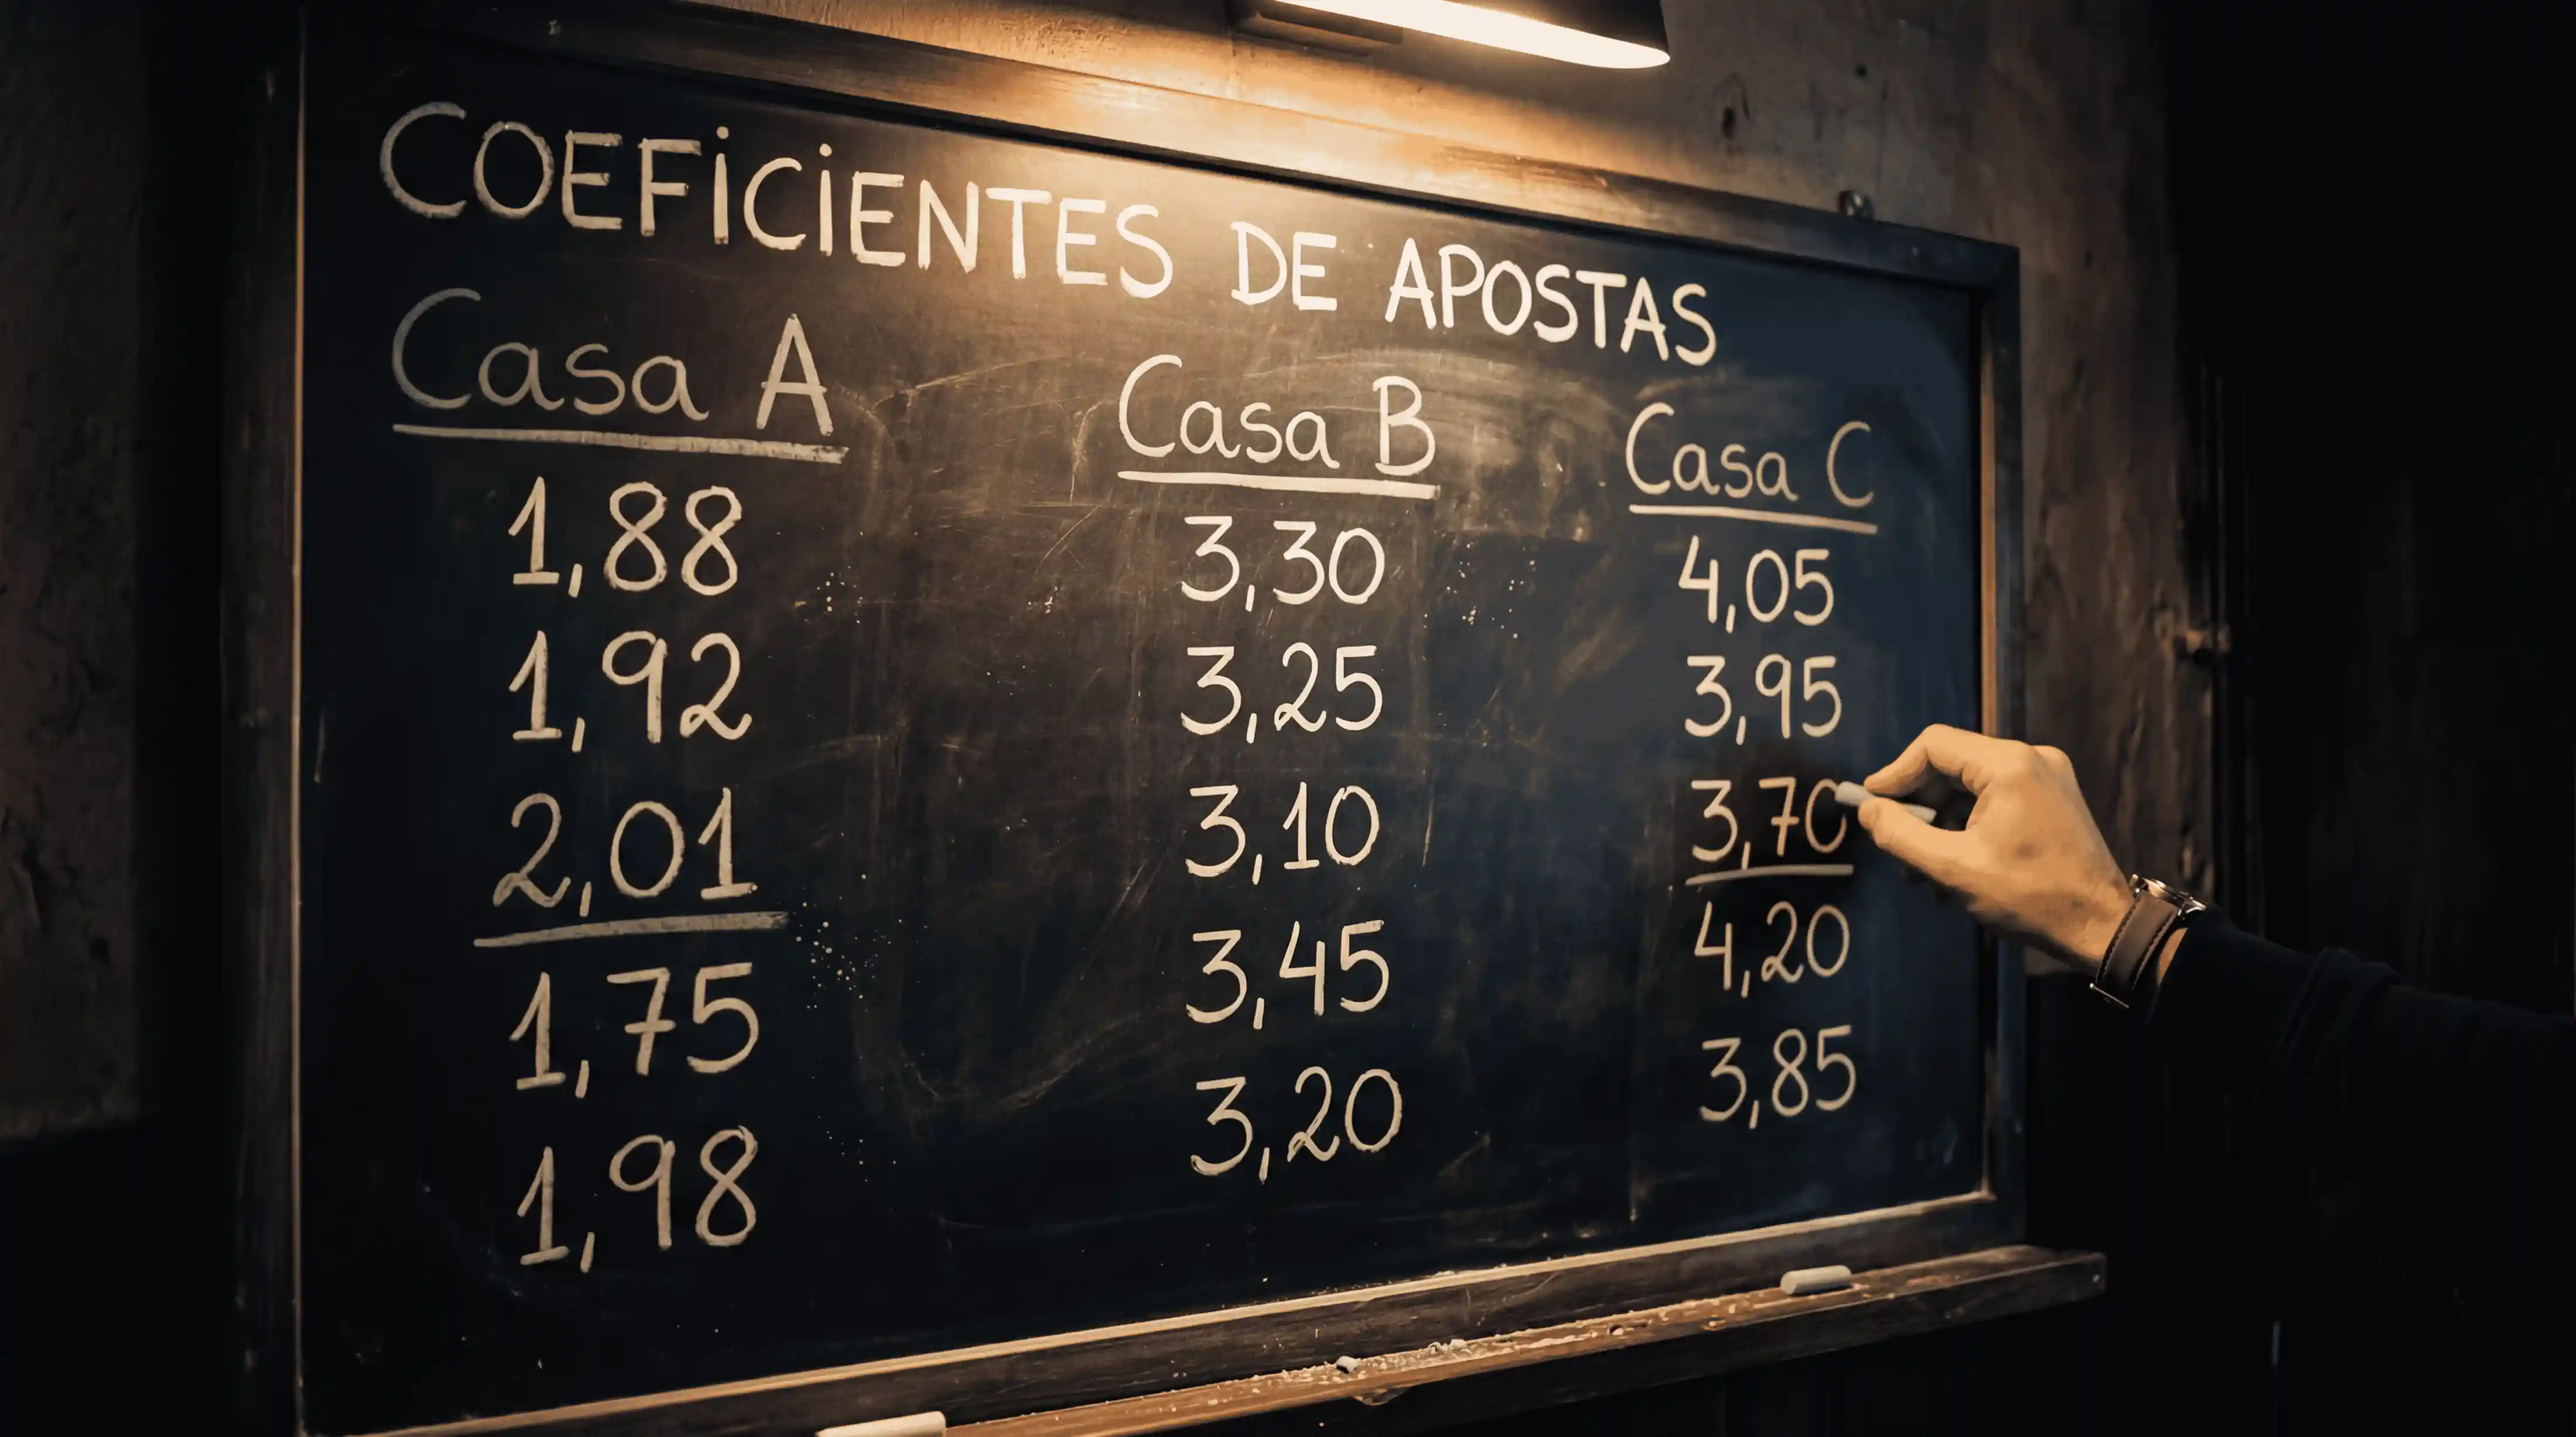 COEFICIENTES DE APOSTAS
Casa A Casa B Casa C
1,88 3,30 4,05
1,92 3,25 3,95
2,01 3,10 3,70
1,75 3,45 4,20
1,98 3,20 3,85